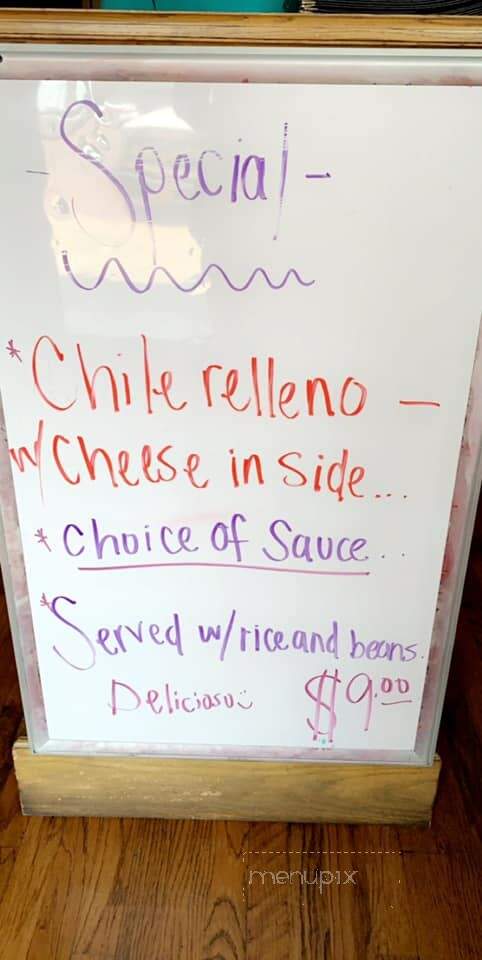 - Special -
* Chile relleno -
w/ Cheese in side...
* choice of Sauce..
* Served w/rice and beans.
Delicioso $9.00
menupix